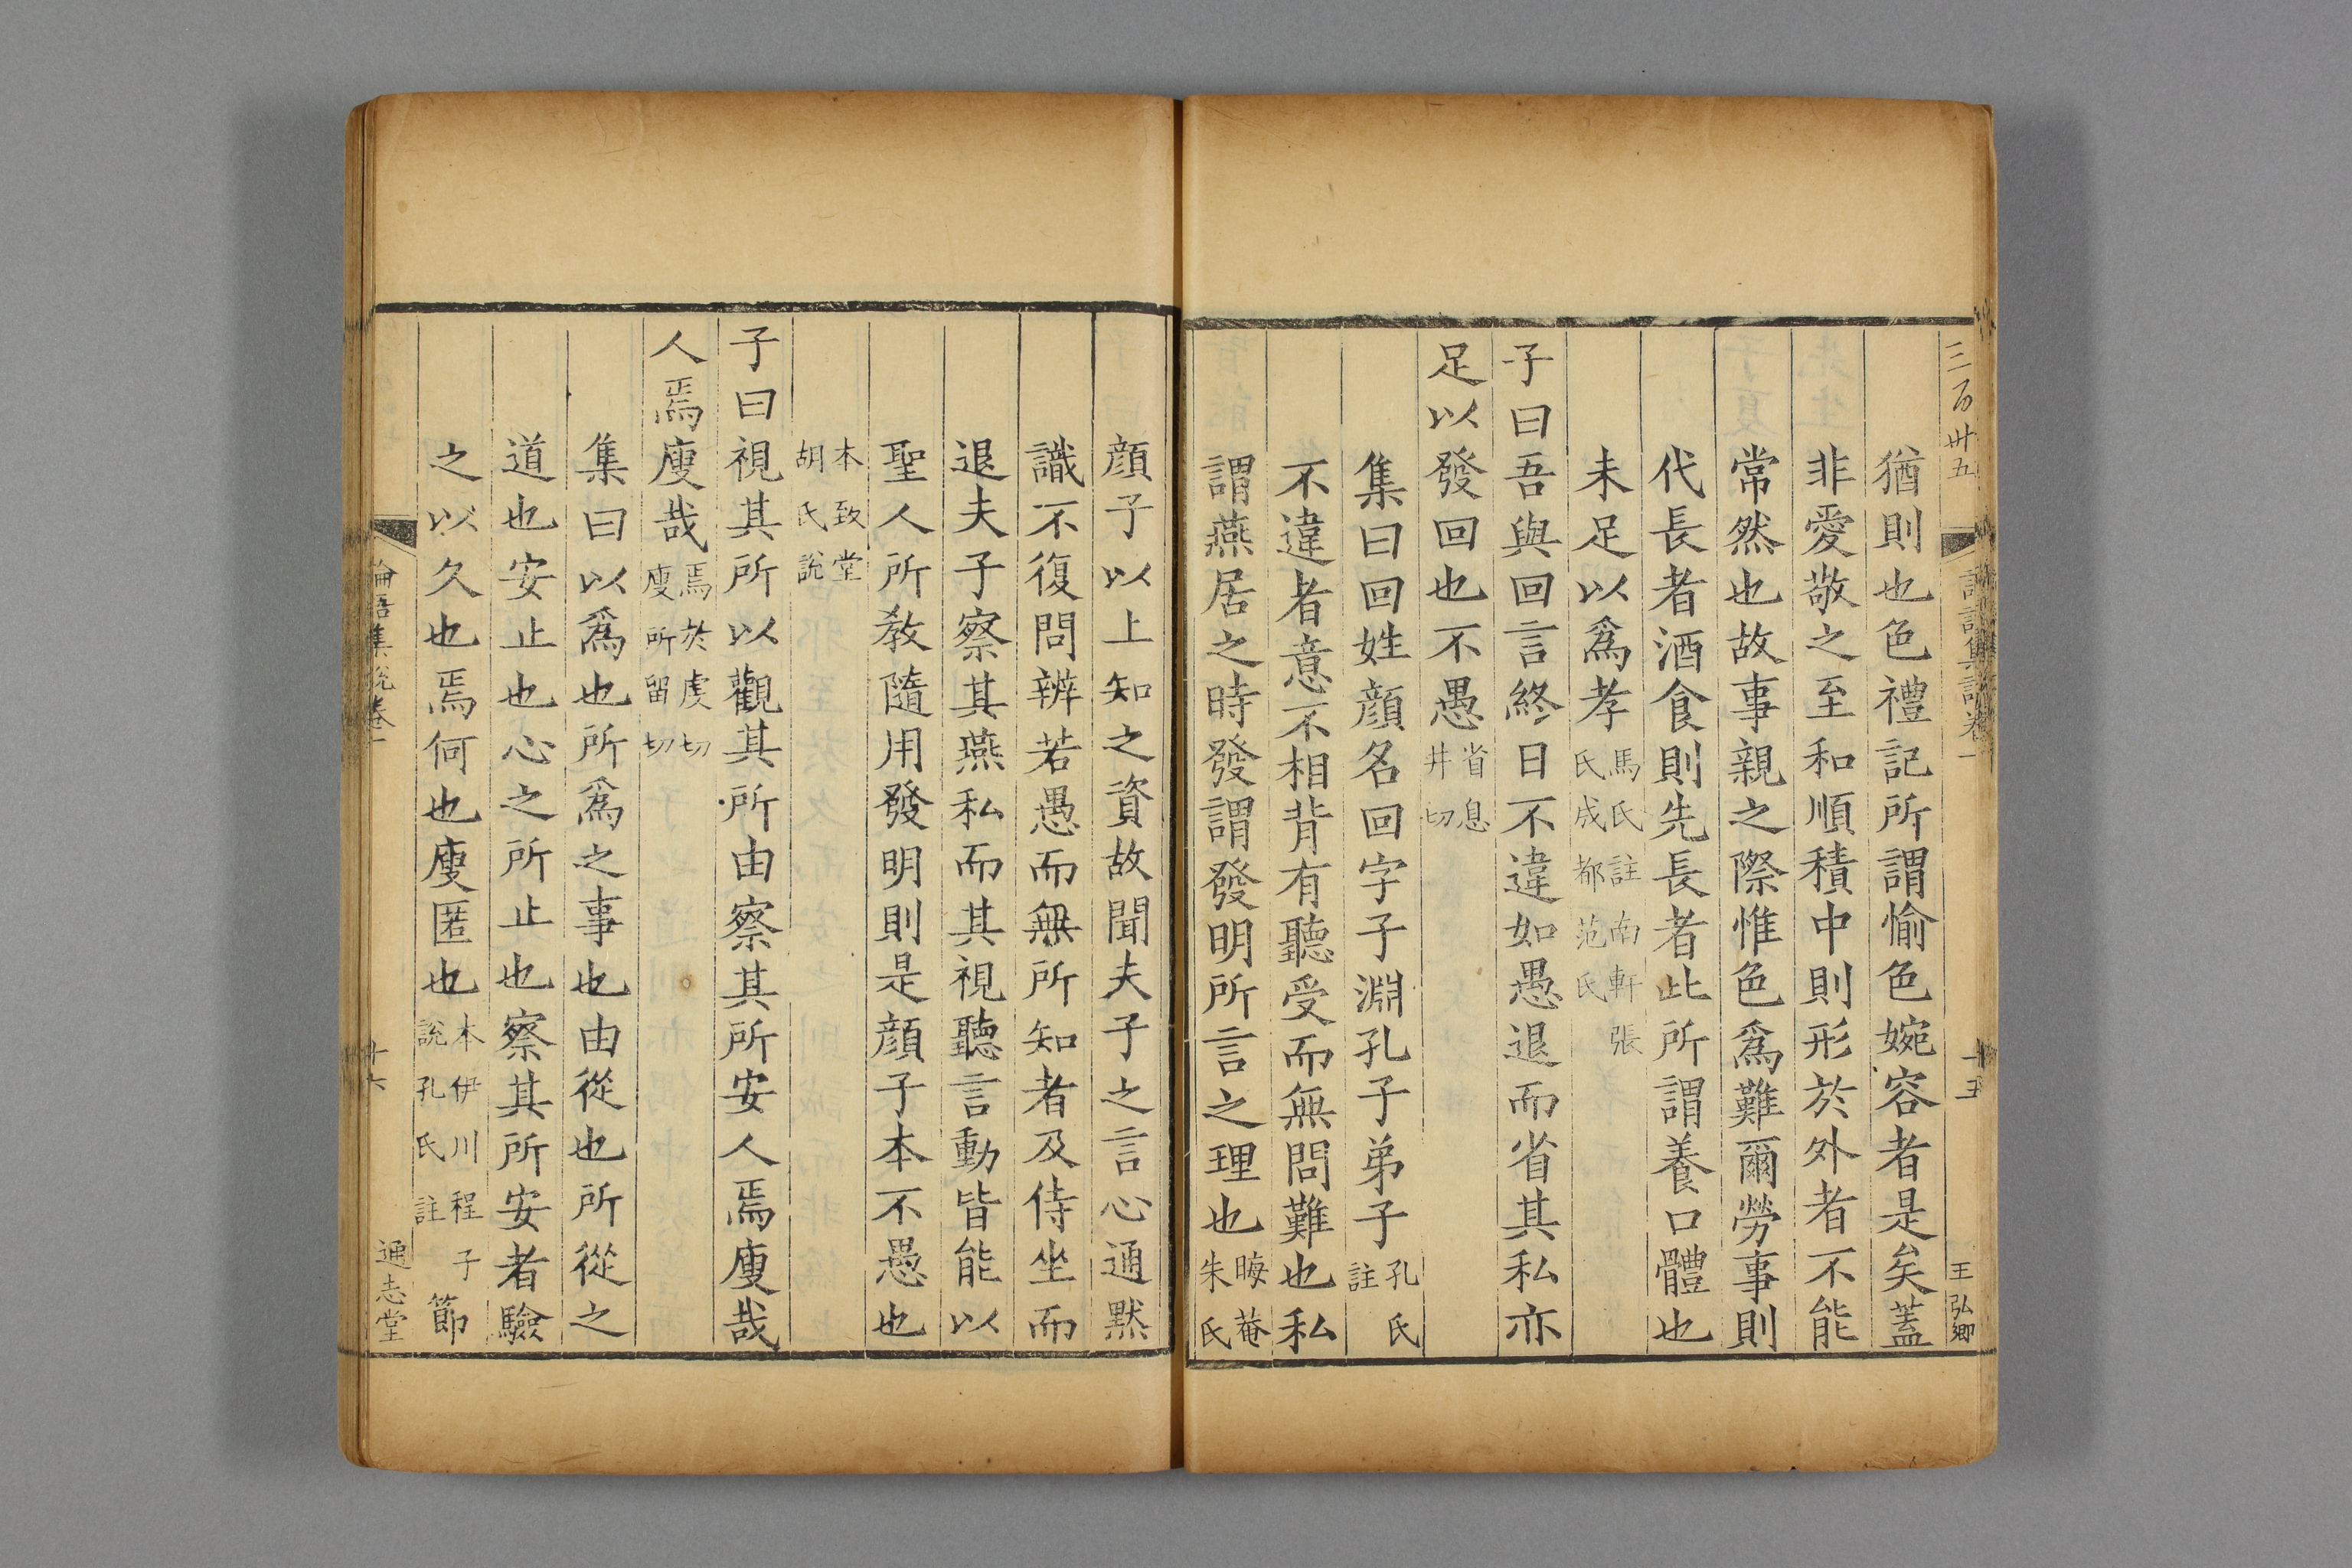 三百卅五
王弘卿
十五
猶則也色禮記所謂愉色婉容者是矣蓋
非愛敬之至和順積中則形於外者不能
常然也故事親之際惟色爲難爾勞事則
代長者酒食則先長者此所謂養口體也
未足以爲孝馬氏註南軒張氏成都范氏
子曰吾與回言終日不違如愚退而省其私亦
足以發回也不愚省息井切
集曰回姓顔名回字子淵孔子弟子孔氏註
不違者意不相背有聽受而無問難也私
謂燕居之時發謂發明所言之理也晦菴朱氏
顔子以上知之資故聞夫子之言心通黙
識不復問辨若愚而無所知者及侍坐而
退夫子察其燕私而其視聽言動皆能以
聖人所教隨用發明則是顔子本不愚也
本致堂胡氏說
子曰視其所以觀其所由察其所安人焉廋哉
人焉廋哉焉於虔切廋所留切
集曰以爲也所爲之事也由從也所從之
道也安止也心之所止也察其所安者驗
之以久也焉何也廋匿也本伊川程子說孔氏註節
論語集說卷一
十六
通志堂